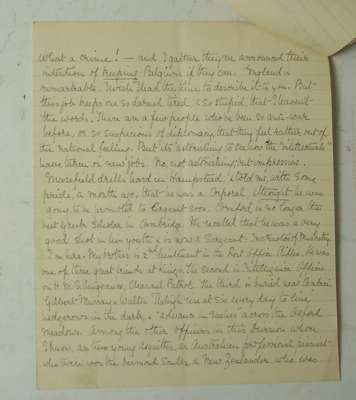 What a crime! — and I gather they've announced their
intention of keeping Belgium if they can. England is
remarkable. I wish I had the time to describe it to you. But
this job keeps one so darned tired, & so stupid, that I haven't
the words. There are a few people who've been so anti-war
before, or so suspicious of diplomacy, that they feel rather out of
the national feeling. But it's astonishing to see how the "intellectuals"
have taken on new jobs. No, not astonishing; but impressive.
Masefield drills hard in Hampstead, & told me, with some
pride, a month ago, that he was a Corporal, & thought he was
going to be promoted to Sergeant soon. Cornford is no longer the
best Greek Scholar in Cambridge. He recalled that he was a very
good shot in his youth & is now a Sergeant-Instructor of Musketry.
I'm here. My brother is a 2nd Lieutenant in the Post Office Rifles. He was
one of three great friends at King's. The second is Intelligence Officer
on H.M.S. Vengeance, Channel Patrol. The third is buried near Cambrai.
Gilbert Murray & Walter Raleigh rise at six every day to line
hedgerows in the dark, & "advance in rushes" across the Oxford
meadows. Among the other officers in this Division whom
I know, are two young Asquiths, an Australian professional pianist
who twice won the Diamond Sculls, a New Zealander who was